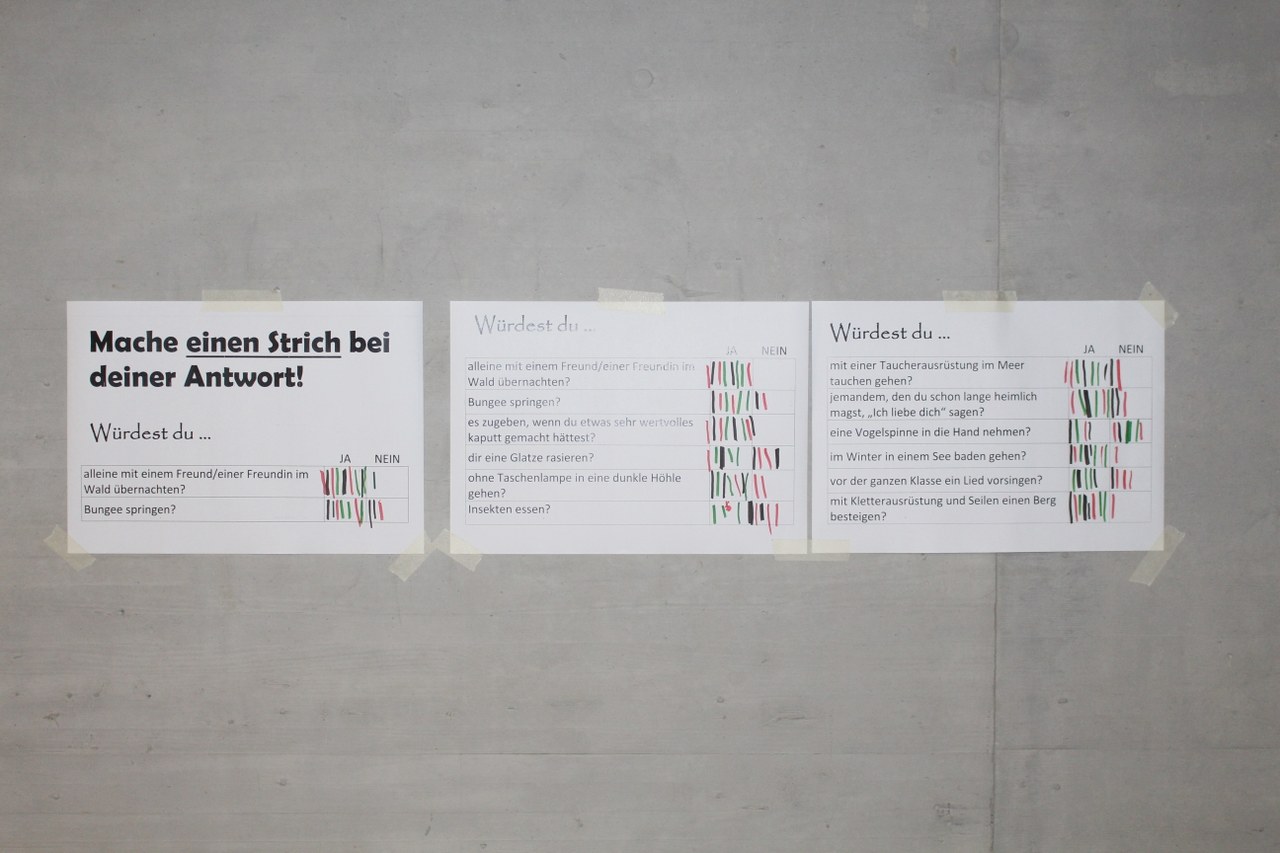 Mache einen Strich bei
deiner Antwort!
Würdest du ...
JA NEIN
alleine mit einem Freund/einer Freundin im
Wald übernachten?
Bungee springen?
Würdest du ...
JA NEIN
alleine mit einem Freund/einer Freundin im
Wald übernachten?
Bungee springen?
es zugeben, wenn du etwas sehr wertvolles
kaputt gemacht hättest?
dir eine Glatze rasieren?
ohne Taschenlampe in eine dunkle Höhle
gehen?
Insekten essen?
Würdest du ...
JA NEIN
mit einer Taucherausrüstung im Meer
tauchen gehen?
jemandem, den du schon lange heimlich
magst, „Ich liebe dich“ sagen?
eine Vogelspinne in die Hand nehmen?
im Winter in einem See baden gehen?
vor der ganzen Klasse ein Lied vorsingen?
mit Kletterausrüstung und Seilen einen Berg
besteigen?